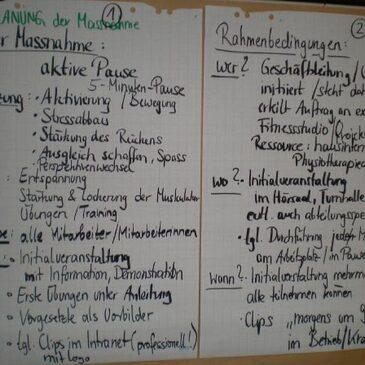 LANUNG der Massnahme
1
r Massnahme :
aktive Pause
5-Minuten-Pause
ung : • Aktivierung / Bewegung
• Stressabbau
• Stärkung des Rückens
• Ausgleich schaffen, Spass
Perspektivenwechsel
: Entspannung
Stärkung & Lockerung der Muskulatur
Übungen / Training
: alle Mitarbeiter / Mitarbeiterinnen
: • Initialveranstaltung
mit Information, Demonstration
• Erste Übungen unter Anleitung
• Vorgesetzte als Vorbilder
• tgl. Clips im Intranet (professionell!)
mit Logo
2
Rahmenbedingungen:
wer? Geschäftsleitung /
initiiert / steht
erteilt Auftrag an
Fitnessstudio /
Ressource : hausintern
Physiotherapie
wo? • Initialveranstaltung
im Hörsaal, Turnhalle
evtl. auch
• tgl. Durchführung
am Arbeitsplatz / in Pause
wann? • Initialverstaltung
alle teilnehmen können
• Clips „morgens um
im Betrieb /